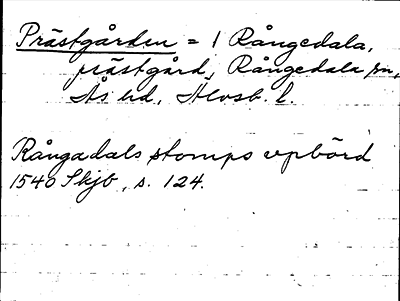 Prästgården = 1 Rångedala,
prästgård, Rångedala sn,
Ås hd, Älvsb. l.
Rångadals stomps vpbörd
1540 Skjb, s. 124.